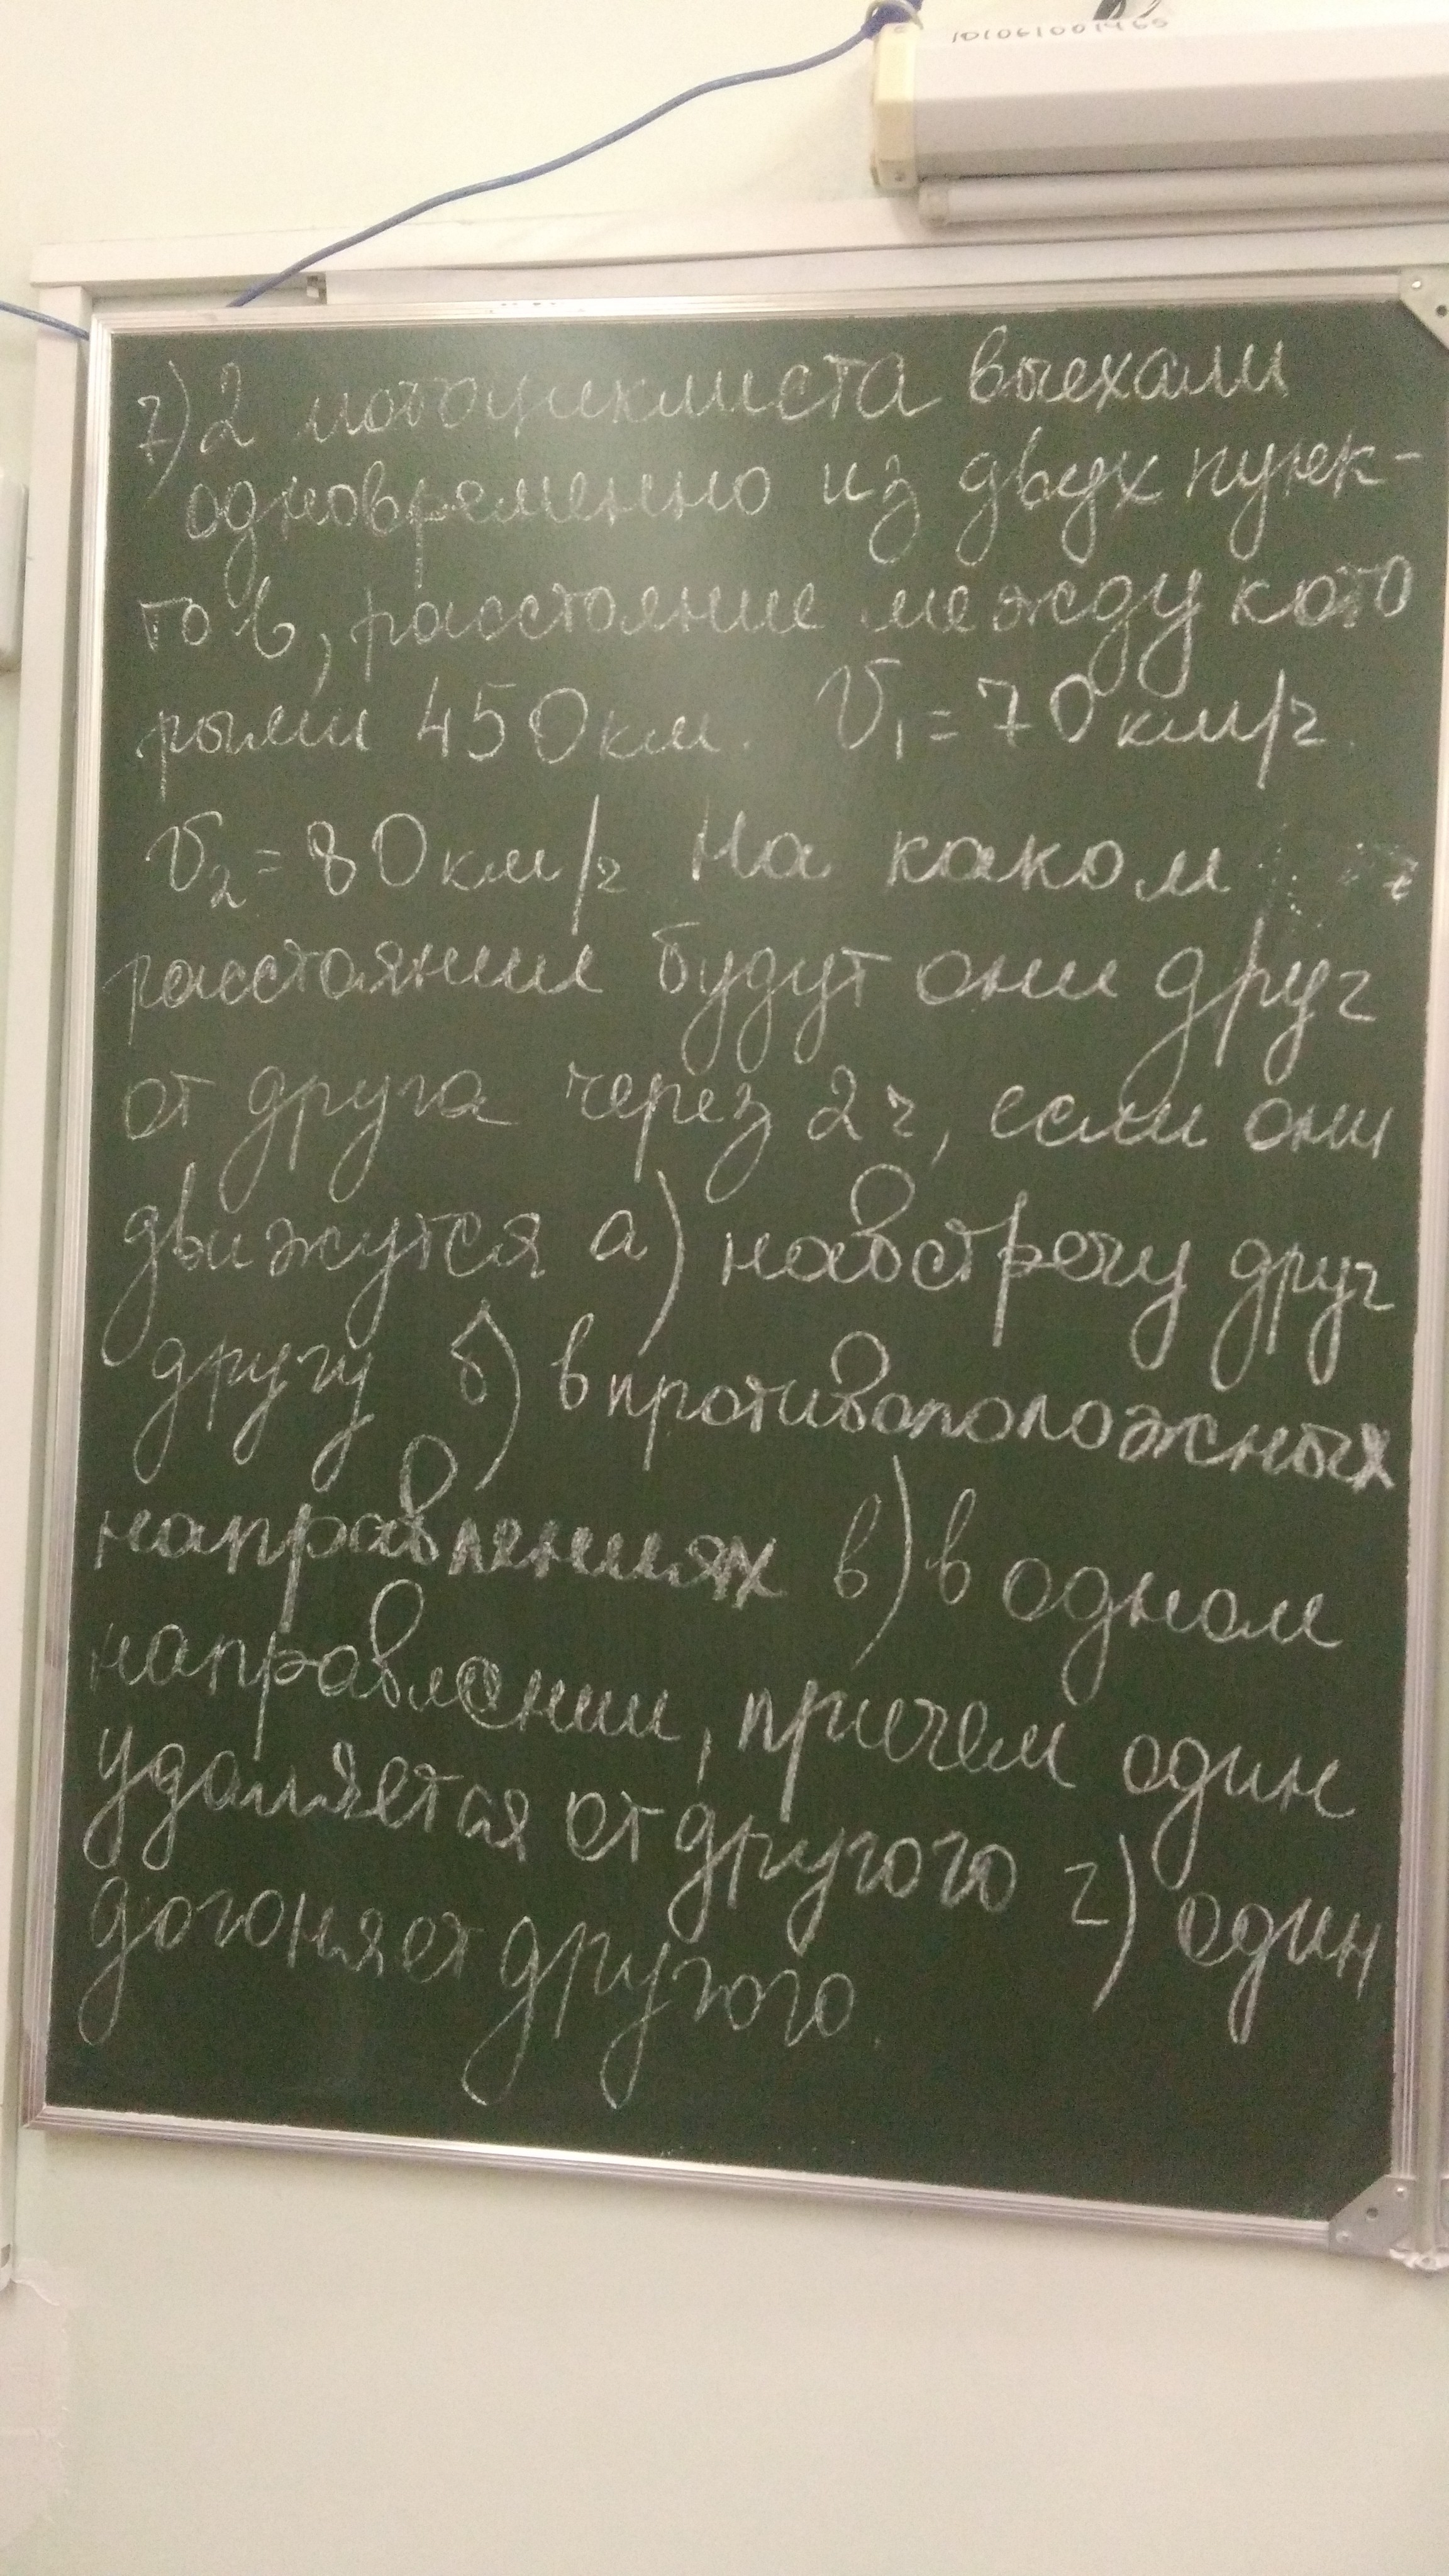 101061001460
7) 2 мотоциклиста выехали
одновременно из двух пунк-
тов, расстояние между кото
рыми 450 км. V₁ = 70 км/ч.
V₂ = 80 км/ч На каком
расстоянии будут они друг
от друга через 2 ч, если они
движутся а) навстречу друг
другу б) в противоположных
направлениях в) в одном
направлении, причем один
удаляется от другого г) один
догоняет другого.